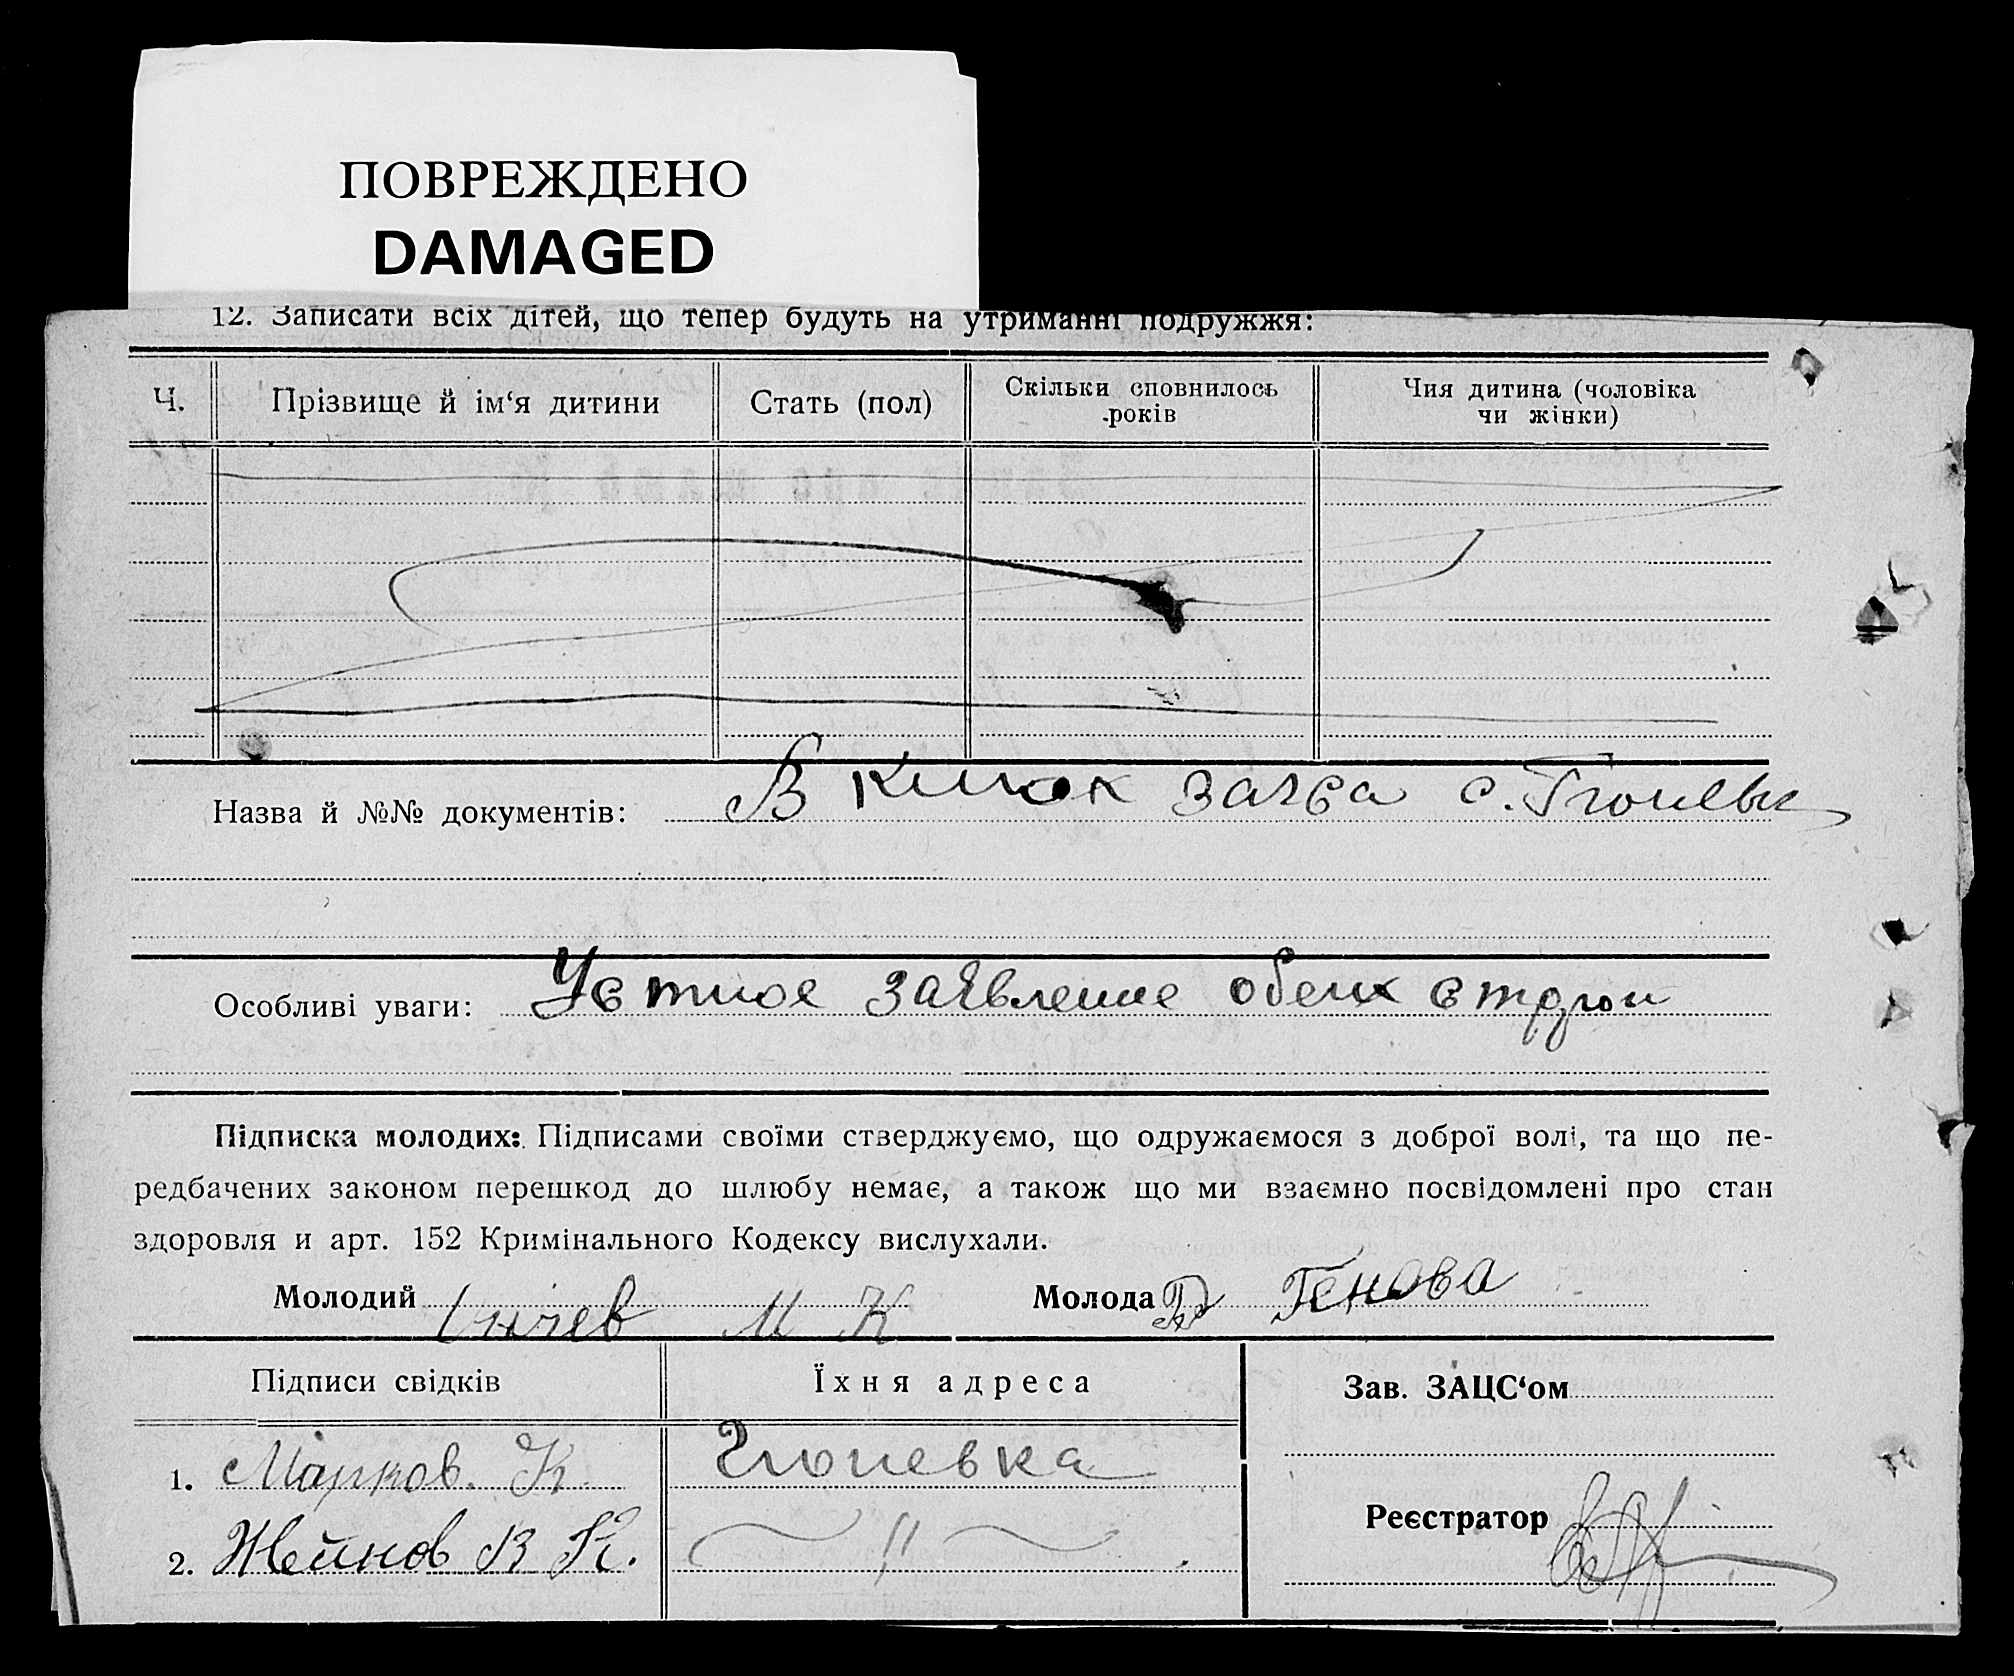 ПОВРЕЖДЕНО
DAMAGED
12. Записати всіх дітей, що тепер будуть на утриманні подружжя:
Ч. Прізвище й ім‘я дитини Стать (пол) Скільки сповнилось років Чия дитина (чоловіка чи жінки)
Назва й №№ документів: В загса с.
Особливі уваги: Устное заявление обеих сторон
Підписка молодих: Підписами своїми стверджуємо, що одружаємося з доброї волі, та що пе-
редбачених законом перешкод до шлюбу немає, а також що ми взаємно посвідомлені про стан
здоровля и арт. 152 Кримінального Кодексу вислухали.
Молодий М К Молода Генова
Підписи свідків Їхня адреса Зав. ЗАЦС‘ом
1. Марков. К. Тюпевка
2. Жейнов В К. — 〃 — Реєстратор